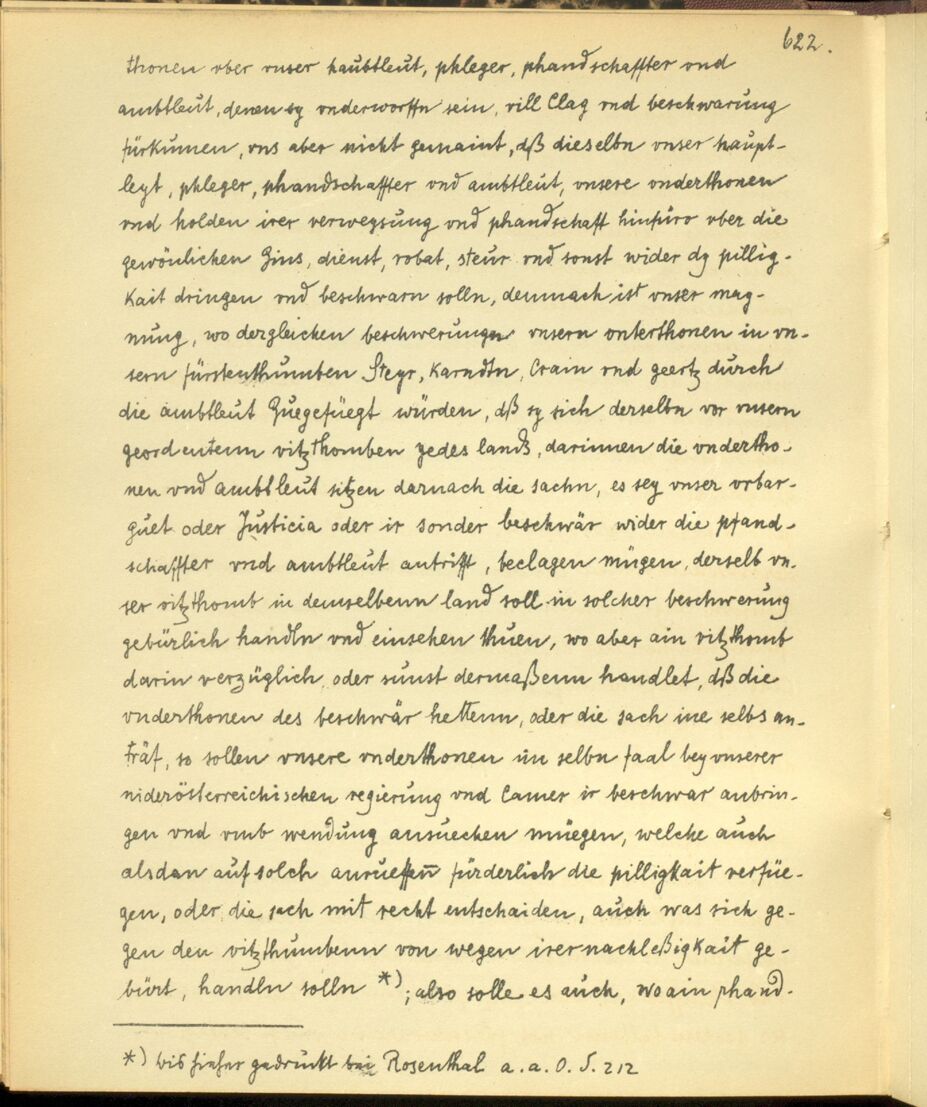 622.
thonen vber vnser haubtleut, phleger, phandschaffter vnd
ambtleut, denen sy vnderworffn sein, vill Clag vnd beschwarung
fürkumen, vns aber nicht gemaint, dß dieselbn vnser haupt-
leyt, phleger, phandschaffter vnd ambtleut, vnsere vnderthonen
vnd holden irer verwegsung vnd phandschafft hinfüro vber die
gewönlichen Zins, dienst, robat, steur vnd sonst wider dy pillig-
kait dringen vnd beschwarn solln, demnach ist vnser mag-
nung, wo dergleichen beschwerungen vnsern vnterthonen in vn-
sern fürstenthumben Steyr, Karndtn, Crain vnd geertz durch
die ambtleut Zuegefüegt würden, dß sy sich derselbn vor vnsern
geordentenn vitzthomben yedes lands, darinnen die vndertho-
nen vnd ambtleut sitzen darnach die sachn, es sey vnser vrbar-
guet oder Justicia oder ir sonder beschwär wider die pfand-
schaffter vnd ambtleut antrifft, beclagen mügen, derselb vn-
ser vitzthomb in demselbenn land soll in solcher beschwerung
gebürlich handln vnd einsehen thuen, wo aber ain vitzthomb
darin verzüglich oder sunst dermaßenn handlet, dß die
vnderthonen des beschwär hettenn, oder die sach ine selbs an-
träf, so sollen vnsere vnderthonen im selbn faal bey vnserer
niderösterreichischen regierung vnd Camer ir beschwar anbrin-
gen vnd vmb wendung ansuechen müegen, welche auch
alsdan auf solch anrueffen̄ fürderlich die pilligkait verfüe-
gen, oder die sach mit recht entschaiden, auch was sich ge-
gen den vitzthumbenn von wegen irer nachleßigkait ge-
bürt, handln solln *) ; also solle es auch, wo ain phand-
*) bis hieher gedruckt bei Rosenthal a. a. O. S. 212